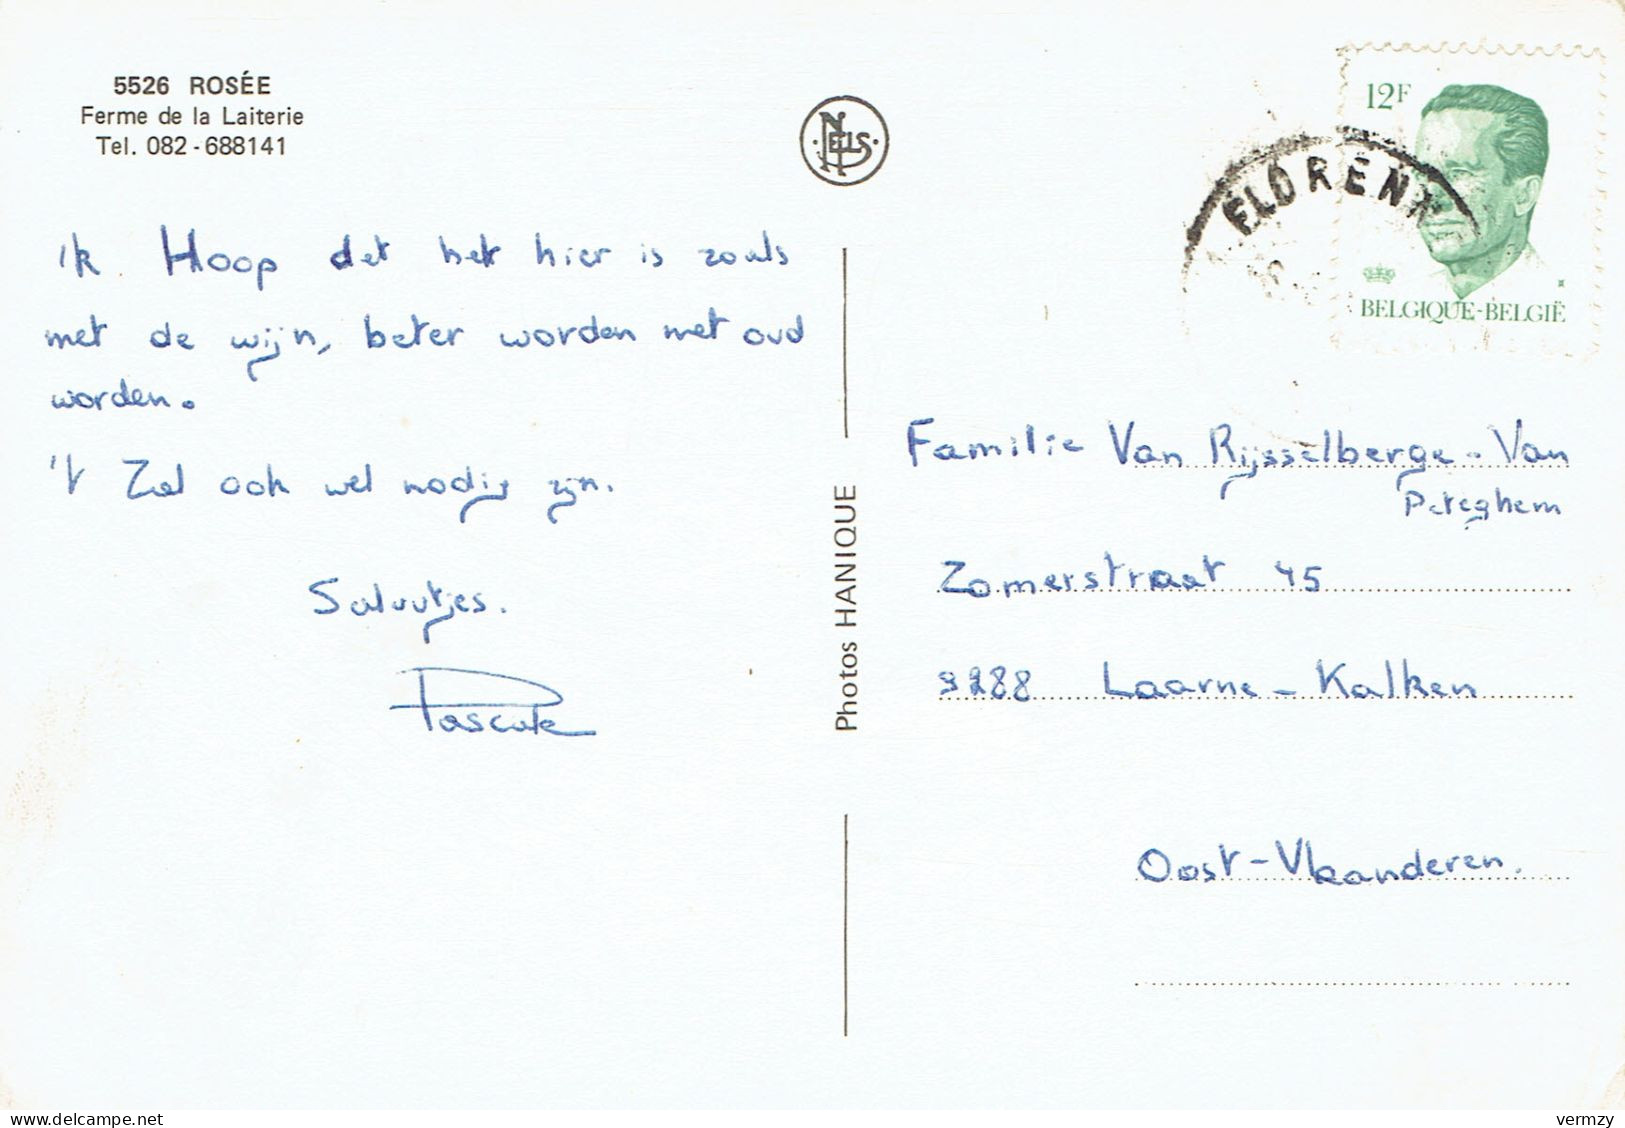 5526 ROSÉE
Ferme de la Laiterie
Tel. 082-688141
NELS
12F
FLORENN
BELGIQUE-BELGIË
'k Hoop dat het hier is zoals
met de wijn, beter worden met oud
worden.
't Zal ook wel nodig zijn.
Saluutjes.
Pascale
Photos HANIQUE
Familie Van Rijsselberge - Van
Peteghem
Zomerstraat 45
9288 Laarne - Kalken
Oost-Vlaanderen.
vermzy